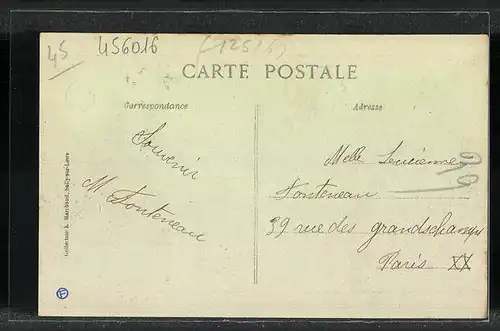 45
456016
CARTE POSTALE
Correspondance
Adresse
Souvenir
M Fonteneau
Melle Lucienne
Fonteneau
39 rue des grandschamps
Paris XX
Collection L. Marchand, Sully-sur-Loire